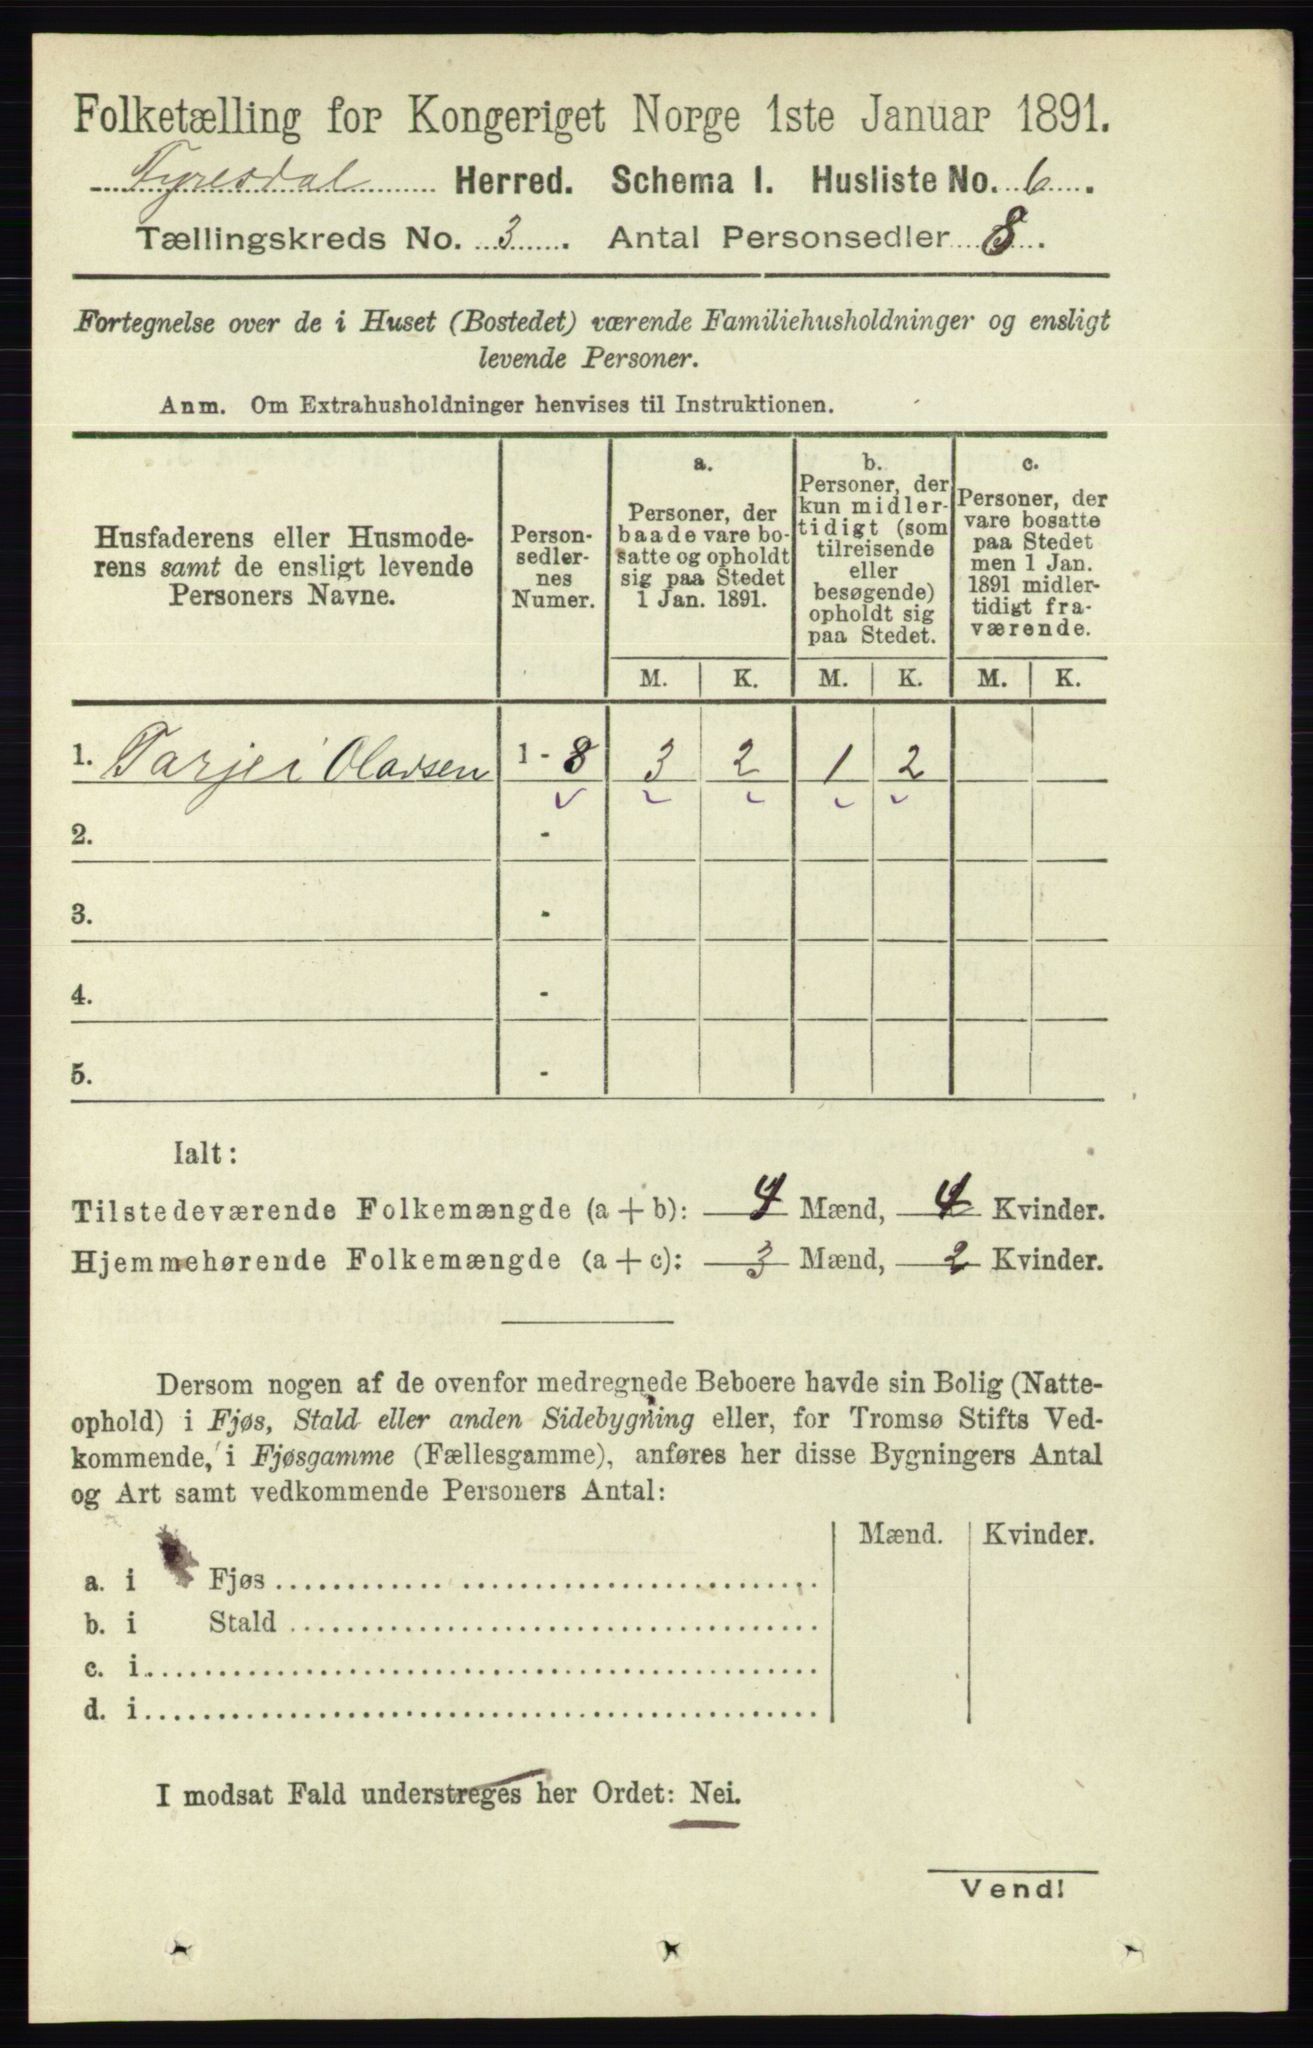 Folketælling for Kongeriget Norge 1ste Januar 1891.
Tyresdal Herred. Schema I. Husliste No. 6.
Tællingskreds No. 3. Antal Personsedler 8.
Fortegnelse over de i Huset (Bostedet) værende Familiehusholdninger og ensligt
levende Personer.
Anm. Om Extrahusholdninger henvises til Instruktionen.
Husfaderens eller Husmode-
rens samt de ensligt levende
Personers Navne.
Person-
sedler-
nes
Numer.
a.
Personer, der
baade vare bo-
satte og opholdt
sig paa Stedet
1 Jan. 1891.
b.
Personer, der
kun midler-
tidigt (som
tilreisende
eller
besøgende)
opholdt sig
paa Stedet.
c.
Personer, der
vare bosatte
paa Stedet
men 1 Jan.
1891 midler-
tidigt fra-
værende.
M. K. M. K. M. K.
1. Tarjei Olavsen 1 - 8 3 2 1 2
2. -
3. -
4. -
5. -
Ialt:
Tilstedeværende Folkemængde (a + b): 4 Mænd, 4 Kvinder.
Hjemmehørende Folkemængde (a + c): 3 Mænd, 2 Kvinder.
Dersom nogen af de ovenfor medregnede Beboere havde sin Bolig (Natte-
ophold) i Fjøs, Stald eller anden Sidebygning eller, for Tromsø Stifts Ved-
kommende, i Fjøsgamme (Fællesgamme), anføres her disse Bygningers Antal
og Art samt vedkommende Personers Antal:
Mænd. Kvinder.
a. i Fjøs
b. i Stald
c. i
d. i
I modsat Fald understreges her Ordet: Nei.
Vend!